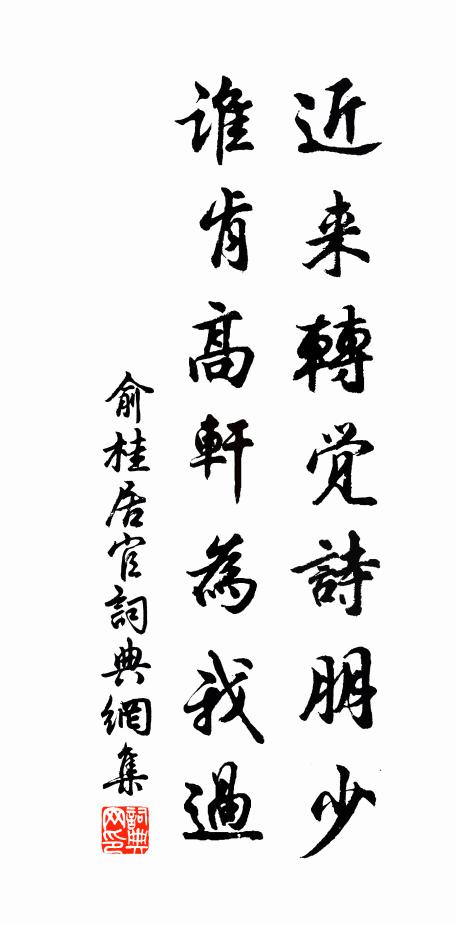 近来轉覺詩朋少
誰肯高軒為我過
俞桂居官詞典網集
詞典网印